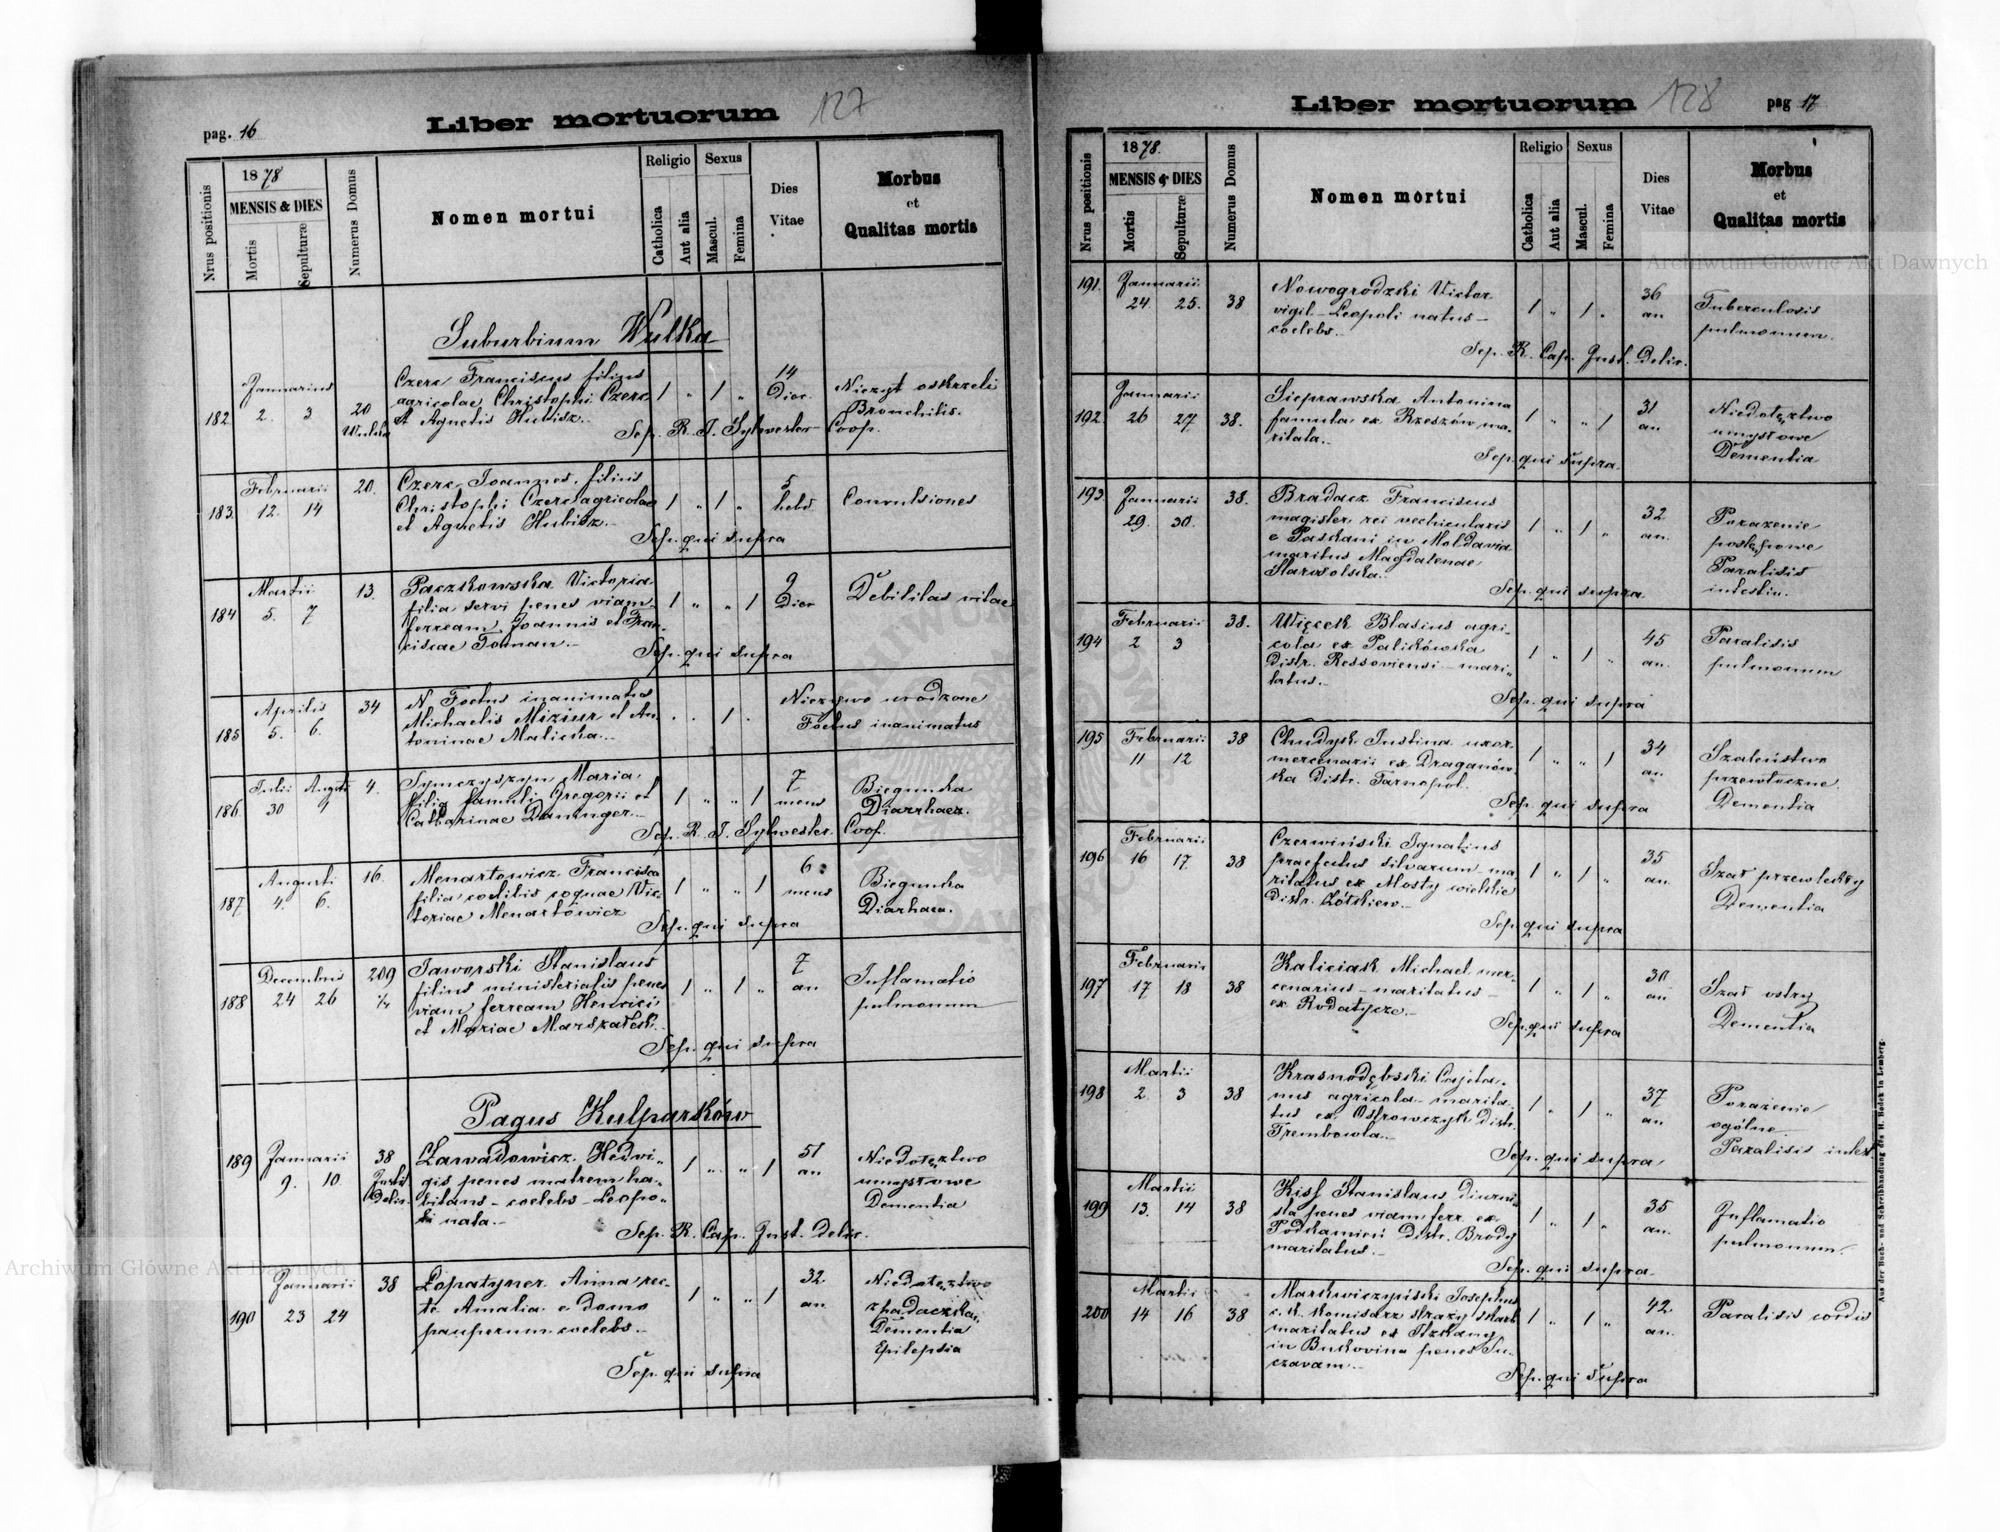 pag. 16
Liber mortuorum
127
Nrus positionis
1878
MENSIS & DIES
Mortis
Sepulturæ
Numerus Domus
Nomen mortui
Religio
Catholica
Aut alia
Sexus
Mascul.
Femina
Dies
Vitae
Morbus
et
Qualitas mortis
Suburbium Wulka
182 Januarius 2. 3 20 Wulka
Czerc Franciscus filius
agricolae Christophi Czerc
et Agnetis Hubisz.
1 „ 1 „ 14 Dier.
Nieżyt oskrzeli
Bronchitis.
Sep. R. J. Sylwester Coop.
183. Februarii 12. 14 20.
Czerc Joannes filius
Christophi Czerc agricolae
et Agnetis Hubisz.
1 „ 1 „ 5 hebd.
Convulsiones
Sep. qui supra
184 Martii 5. 7 13.
Paczkowska Victoria
filia servi penes viam
ferream Joannis et Fran-
ciscae Toman.
1 „ „ 1 9 Dier
Debilitas vitae
Sep. qui supra
185 Aprilis 5. 6. 34
N Foetus inanimatus
Michaelis Miziur et An-
toninae Malicka.
1
Nieżywo urodzone
Foetus inanimatus
186. Julii 30 Augusti 1 4.
Symczyszyn Maria
filia famuli Gregorii et
Catharinae Daninger.
1 „ „ 1 7 mens
Biegunka
Diarrhaea.
Sep. R. J. Sylwester Coop.
187 Augusti 4. 6. 16.
Menartowicz Francisca
filia coelibis coquae Vic-
toriae Menartowicz
1 „ „ 1 6 mens
Biegunka
Diarhaea.
Sep. qui supra
188 Decembris 24 26 209 ¼
Jaworski Stanislaus
filius ministerialis penes
viam ferream Henrici
et Mariae Marszałek.
1 „ 1 „ 7 an
Inflamatio
pulmonum
Sep. qui supra
Pagus Kulparków
189 Januarii 9. 10. 38 Instit. Delir.
Zawadowicz Hedvi-
gis penes matrem ha-
bitans - coelebs - Leopo-
li nata.
1 „ „ 1 51 an
Niedołęztwo
umysłowe
Dementia
Sep. R. Cap. Inst. delir.
190 Januarii 23 24 38
Łopatyner Anna rec-
te Amalia e domo
pauperum coelebs.
1 „ „ 1 32. an
Niedołęztwo
z padaczką
Dementia
Epilepsia
Sep. qui supra
Liber mortuorum
128
pag 17
Nrus positionis
1878.
MENSIS & DIES
Mortis
Sepulturæ
Numerus Domus
Nomen mortui
Religio
Catholica
Aut alia
Sexus
Mascul.
Femina
Dies
Vitae
Morbus
et
Qualitas mortis
191. Januarii 24. 25. 38
Nowogrodzki Victor
vigil - Leopoli natus -
coelebs.
1 „ 1 „ 36 an
Tuberculosis
pulmonum.
Sep. R. Cap. Inst. Delir.
192. Januarii 26 27 38.
Sieprawska Antonina
famula ex Rzeszów ma-
ritata.
1 „ „ 1 31 an
Niedołęztwo
umysłowe
Dementia
Sep. qui supra.
193. Januarii 29. 30. 38.
Bradacz Franciscus
magister rei vechicularis
e Paskani in Moldavia
maritus Magdalenae
Starwolska.
1 „ 1 „ 32 an.
Porażenie
postępowe
Paralisis
intestin.
Sep. qui supra.
194 Februarii 2 3 38.
Więcek Blasius agri-
cola ex Palikówka
Distr. Ressoviensi - mari-
tatus.
1 „ 1 „ 45 an.
Paralisis
pulmonum
Sep. qui supra
195 Februarii 11 12 38
Chudyk Justina uxor
mercenarii ex Draganów-
ka Distr. Tarnopol.
1 „ „ 1 34 an.
Szaleństwo
przewłoczne.
Dementia
Sep. qui supra
196 Februarii 16 17 38
Czerwiński Ignatius
praefectus silvarum - ma-
ritatus ex Mosty wielkie
Distr. Żółkiew.
1 „ 1 „ 35 an.
Szał przewlekły
Dementia
Sep. qui supra
197 Februarii 17 18 38
Kaliciak Michael mer-
cenarius - maritatus -
ex Rodatycze.
1 „ 1 „ 30 an
Szał ostry
Dementia
Sep. qui supra
198 Martii 2. 3 38
Krasnodębski Cajeta-
nus agricola - marita-
tus ex Ostrowczyk Distr.
Trembowla.
1 „ 1 „ 37 an
Porażenie
ogólne
Paralisis intest.
Sep. qui supra
199 Martii 13. 14 38
Kiss Stanislaus diurni-
sta penes viam ferr. ex
Podkamień Distr. Brody
maritatus.
1 „ 1 „ 35 an.
Inflamatio
pulmonum.
Sep. qui supra.
200 Martii 14 16 38
Markwiczyński Josephus
c. k. komisarz straży skarb
maritatus ex Itzkany
in Bukovina penes Su-
czavam.
1 „ 1 „ 42. an.
Paralisis cordis
Sep. qui supra
Aus der Buch- und Schreibhandlung des H. Bodek in Lemberg.
Archiwum Główne Akt Dawnych
Archiwum Główne Akt Dawnych